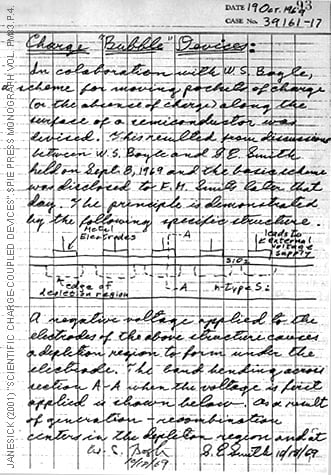 93
DATE 19 Oct. 1969
CASE No. 39161-17
Charge "Bubble" Devices:
In colaboration with W.S. Boyle,
a scheme for moving pockets of charge
(or the absence of charge) along the
surface of a semiconductor was
devised. This resulted from discussions
between W.S. Boyle and G.E. Smith
held on Sept. 8, 1969 and the basic scheme
was disclosed to F.M. Smits later that
day. The principle is demonstrated
by the following specific structure.
Metal
Electrodes
A
leads to
external
voltage
supply
SiO2
edge of
depletion region
A
n-type Si
A negative voltage applied to the
electrodes of the above structure causes
a depletion region to form under the
electrode. The band bending across
section A-A when the voltage is first
applied is shown below. As a result
of generation-recombination
centers in the depletion region and at
W. S. Boyle
G.E. Smith 10/19/69
10/19/69
JANESICK (2001) "SCIENTIFIC CHARGE-COUPLED DEVICES" SPIE PRESS MONOGRAPH VOL. PM83 P.4.